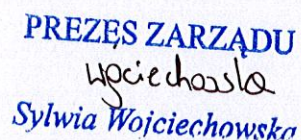 PREZES ZARZĄDU
Wojciechowska
Sylwia Wojciechowska